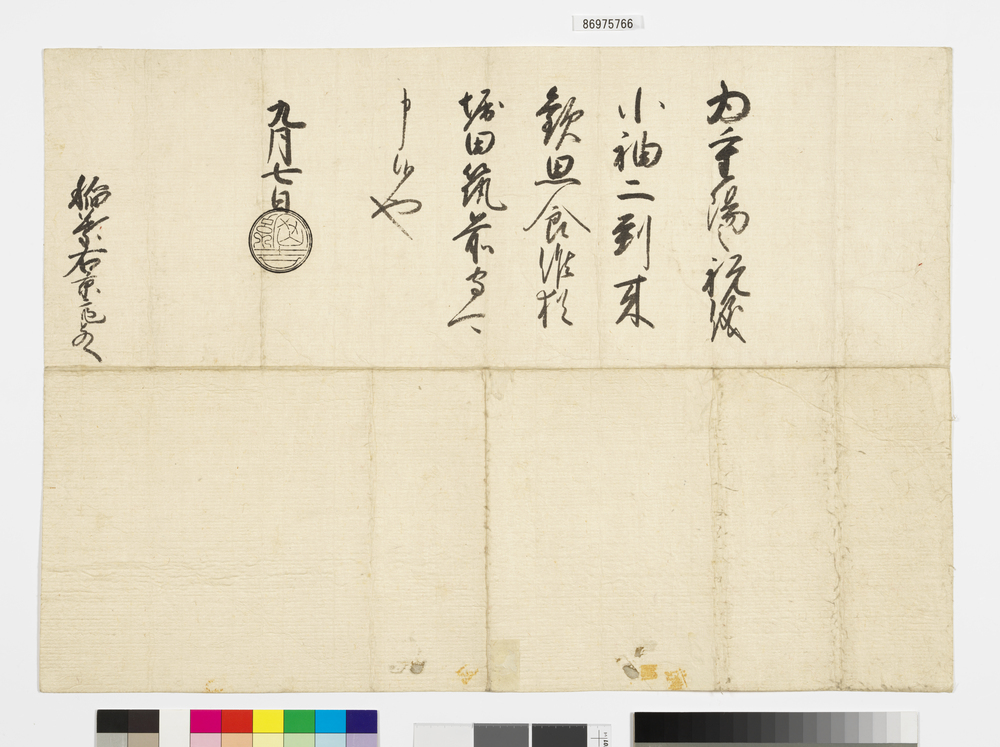 86975766
為重陽之祝儀
小袖二到来
歓思食候猶
堀田筑前守可
申候也
九月七日
稲葉右京亮とのへ